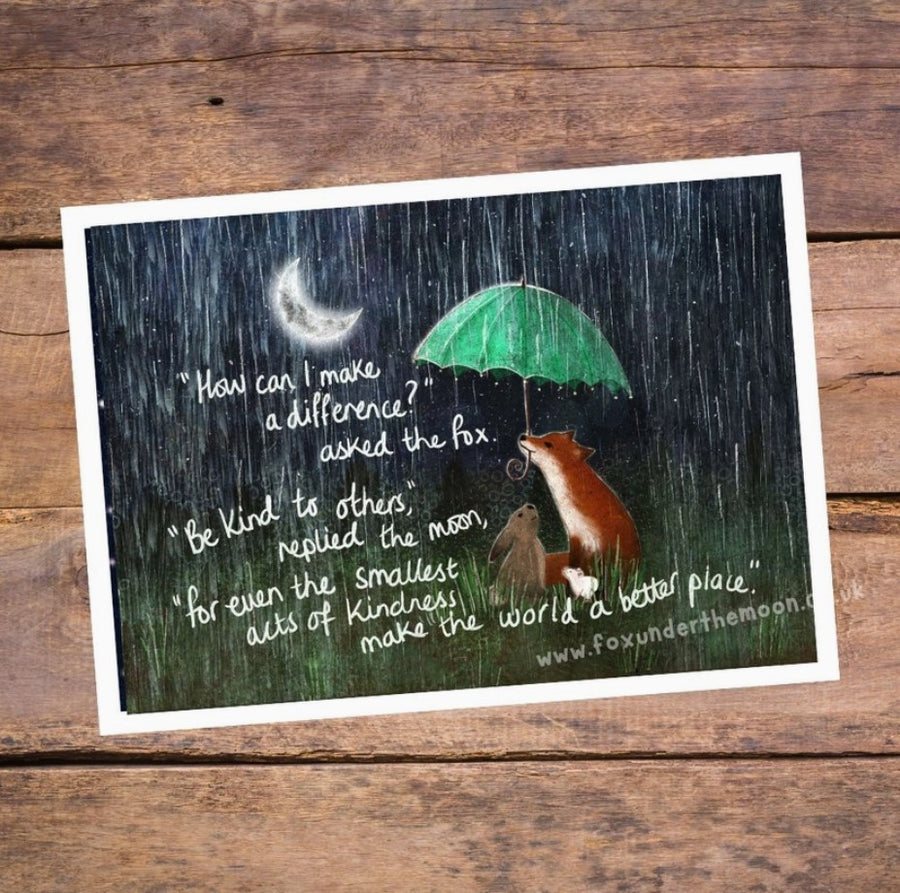 "How can I make
a difference?"
asked the fox.
"Be Kind to others,"
replied the moon,
"for even the smallest
acts of kindness
make the world a better place."
www.foxunderthemoon.co.uk